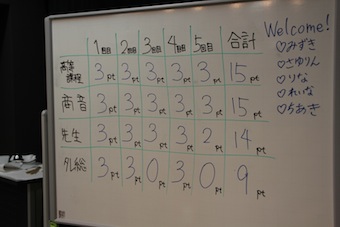 1回目 2回目 3回目 4回目 5回目 合計
高等課程 3pt 3pt 3pt 3pt 3pt 15pt
商音 3pt 3pt 3pt 3pt 3pt 15pt
先生 3pt 3pt 3pt 3pt 2pt 14pt
タレ総 3pt 3pt 0pt 3pt 0pt 9pt
Welcome!
♡みずき
♡さゆりん
♡りな
♡れいな
♡ちあき